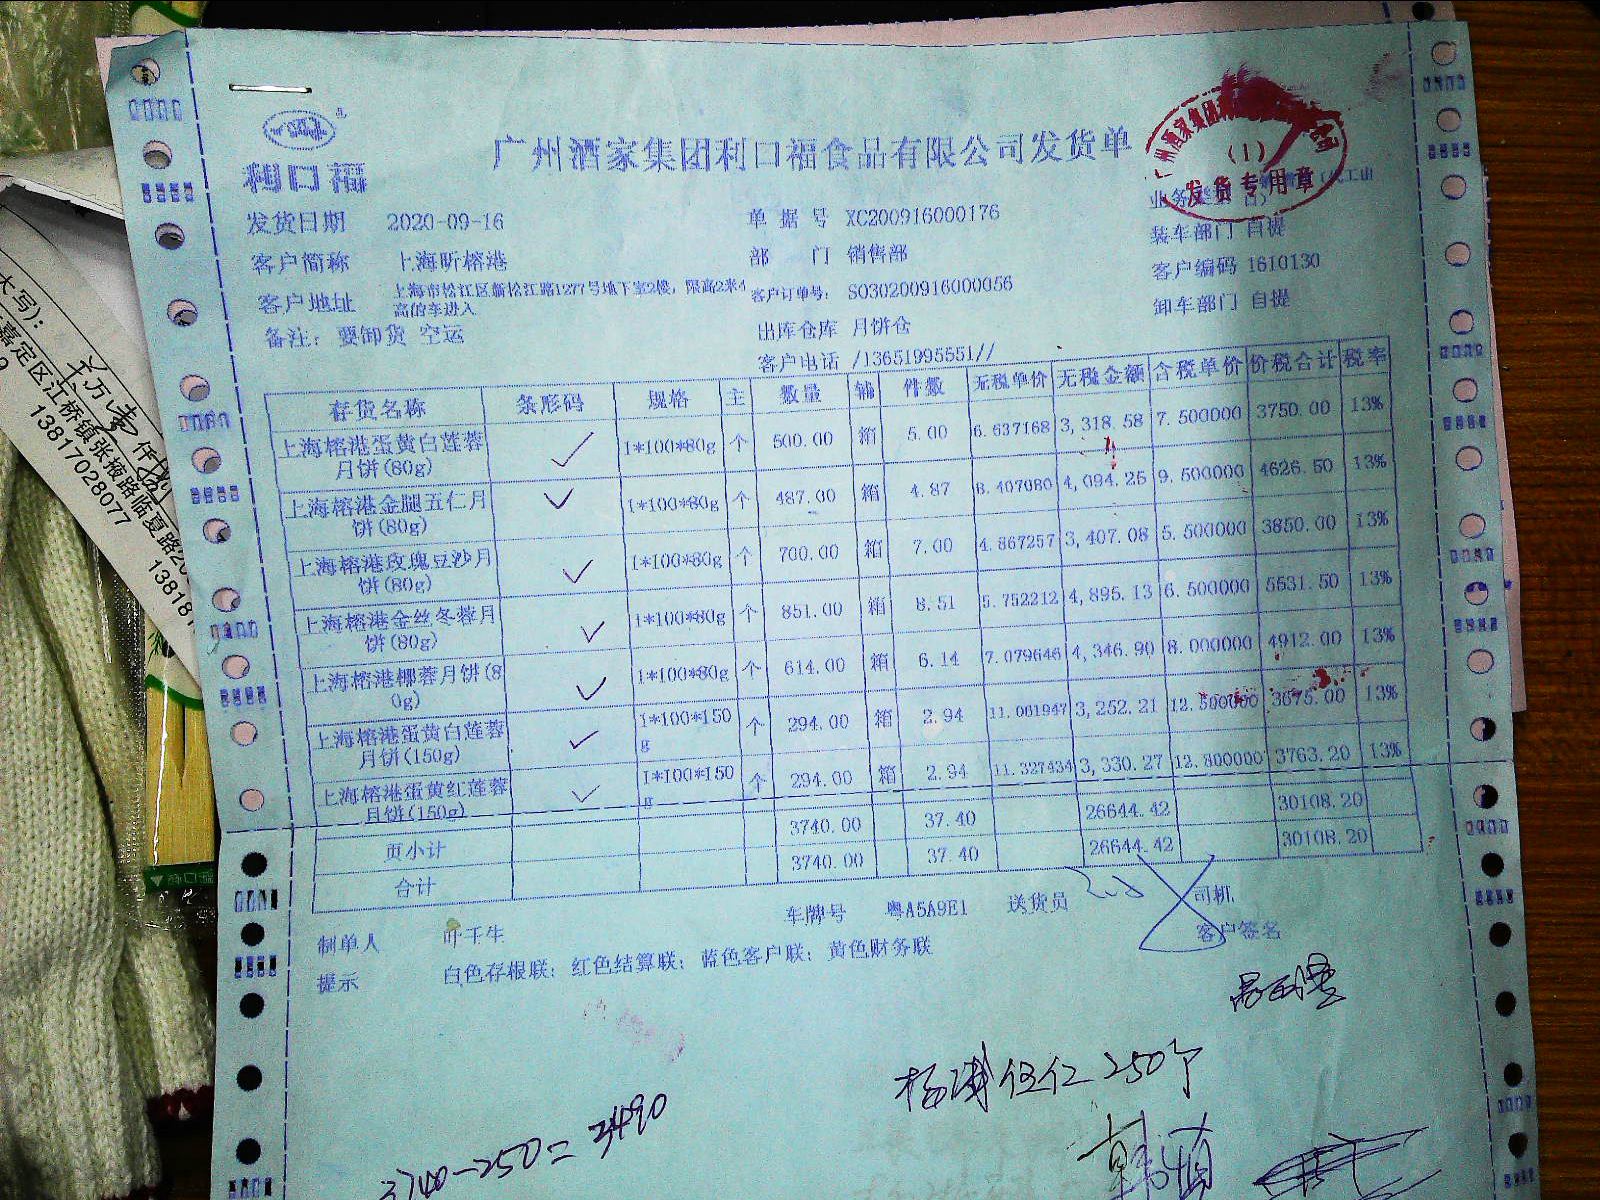 利口福
广州酒家集团利口福食品有限公司发货单
(1)
发货专用章
发货日期 2020-09-16 单据号 XC200916000176
客户简称 上海昕榕港 部门 销售部 装车部门 自提
客户地址 上海市松江区新松江路1277号地下室2楼，限高2米4高的车进入 客户订单号： SO30200916000056 客户编码 1610130
备注： 要卸货 空运 出库仓库 月饼仓 卸车部门 自提
客户电话 /13651995551//
存货名称 条形码 规格 主 数量 辅 件数 无税单价 无税金额 含税单价 价税合计 税率
上海榕港蛋黄白莲蓉月饼(80g) 1*100*80g 个 500.00 箱 5.00 6.637168 3,318.58 7.500000 3750.00 13%
上海榕港金腿五仁月饼(80g) 1*100*80g 个 487.00 箱 4.87 8.407080 4,094.25 9.500000 4626.50 13%
上海榕港玫瑰豆沙月饼(80g) 1*100*80g 个 700.00 箱 7.00 4.867257 3,407.08 5.500000 3850.00 13%
上海榕港金丝冬蓉月饼(80g) 1*100*80g 个 851.00 箱 8.51 5.752212 4,895.13 6.500000 5531.50 13%
上海榕港椰蓉月饼(80g) 1*100*80g 个 614.00 箱 6.14 7.079646 4,346.90 8.000000 4912.00 13%
上海榕港蛋黄白莲蓉月饼(150g) 1*100*150g 个 294.00 箱 2.94 11.061947 3,252.21 12.500000 3675.00 13%
上海榕港蛋黄红莲蓉月饼(150g) 1*100*150g 个 294.00 箱 2.94 11.327434 3,330.27 12.800000 3763.20 13%
页小计 3740.00 37.40 26644.42 30108.20
合计 3740.00 37.40 26644.42 30108.20
制单人 叶壬生 车牌号 粤A5A9E1 送货员 司机
客户签名
提示 白色存根联；红色结算联；蓝色客户联；黄色财务联
杨浦伍仁250个
3740-250=3490
大写)：
嘉定区江桥镇张掖路临夏路
13817028077